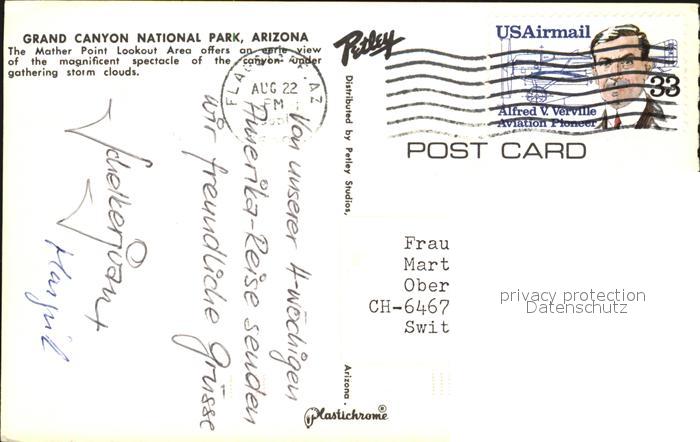 GRAND CANYON NATIONAL PARK, ARIZONA
The Mather Point Lookout Area offers an eerie view
of the magnificent spectacle of the canyon under
gathering storm clouds.
Petley
Distributed by Petley Studios,
Arizona.
Plastichrome®
AUG 22
PM
AZ
USAirmail
33
Alfred V. Verville
Aviation Pioneer
POST CARD
Von unserer 4-wöchigen
Amerika-Reise senden
wir freundliche Grüsse
Frau
Mart
Ober
CH-6467
Swit
privacy protection
Datenschutz